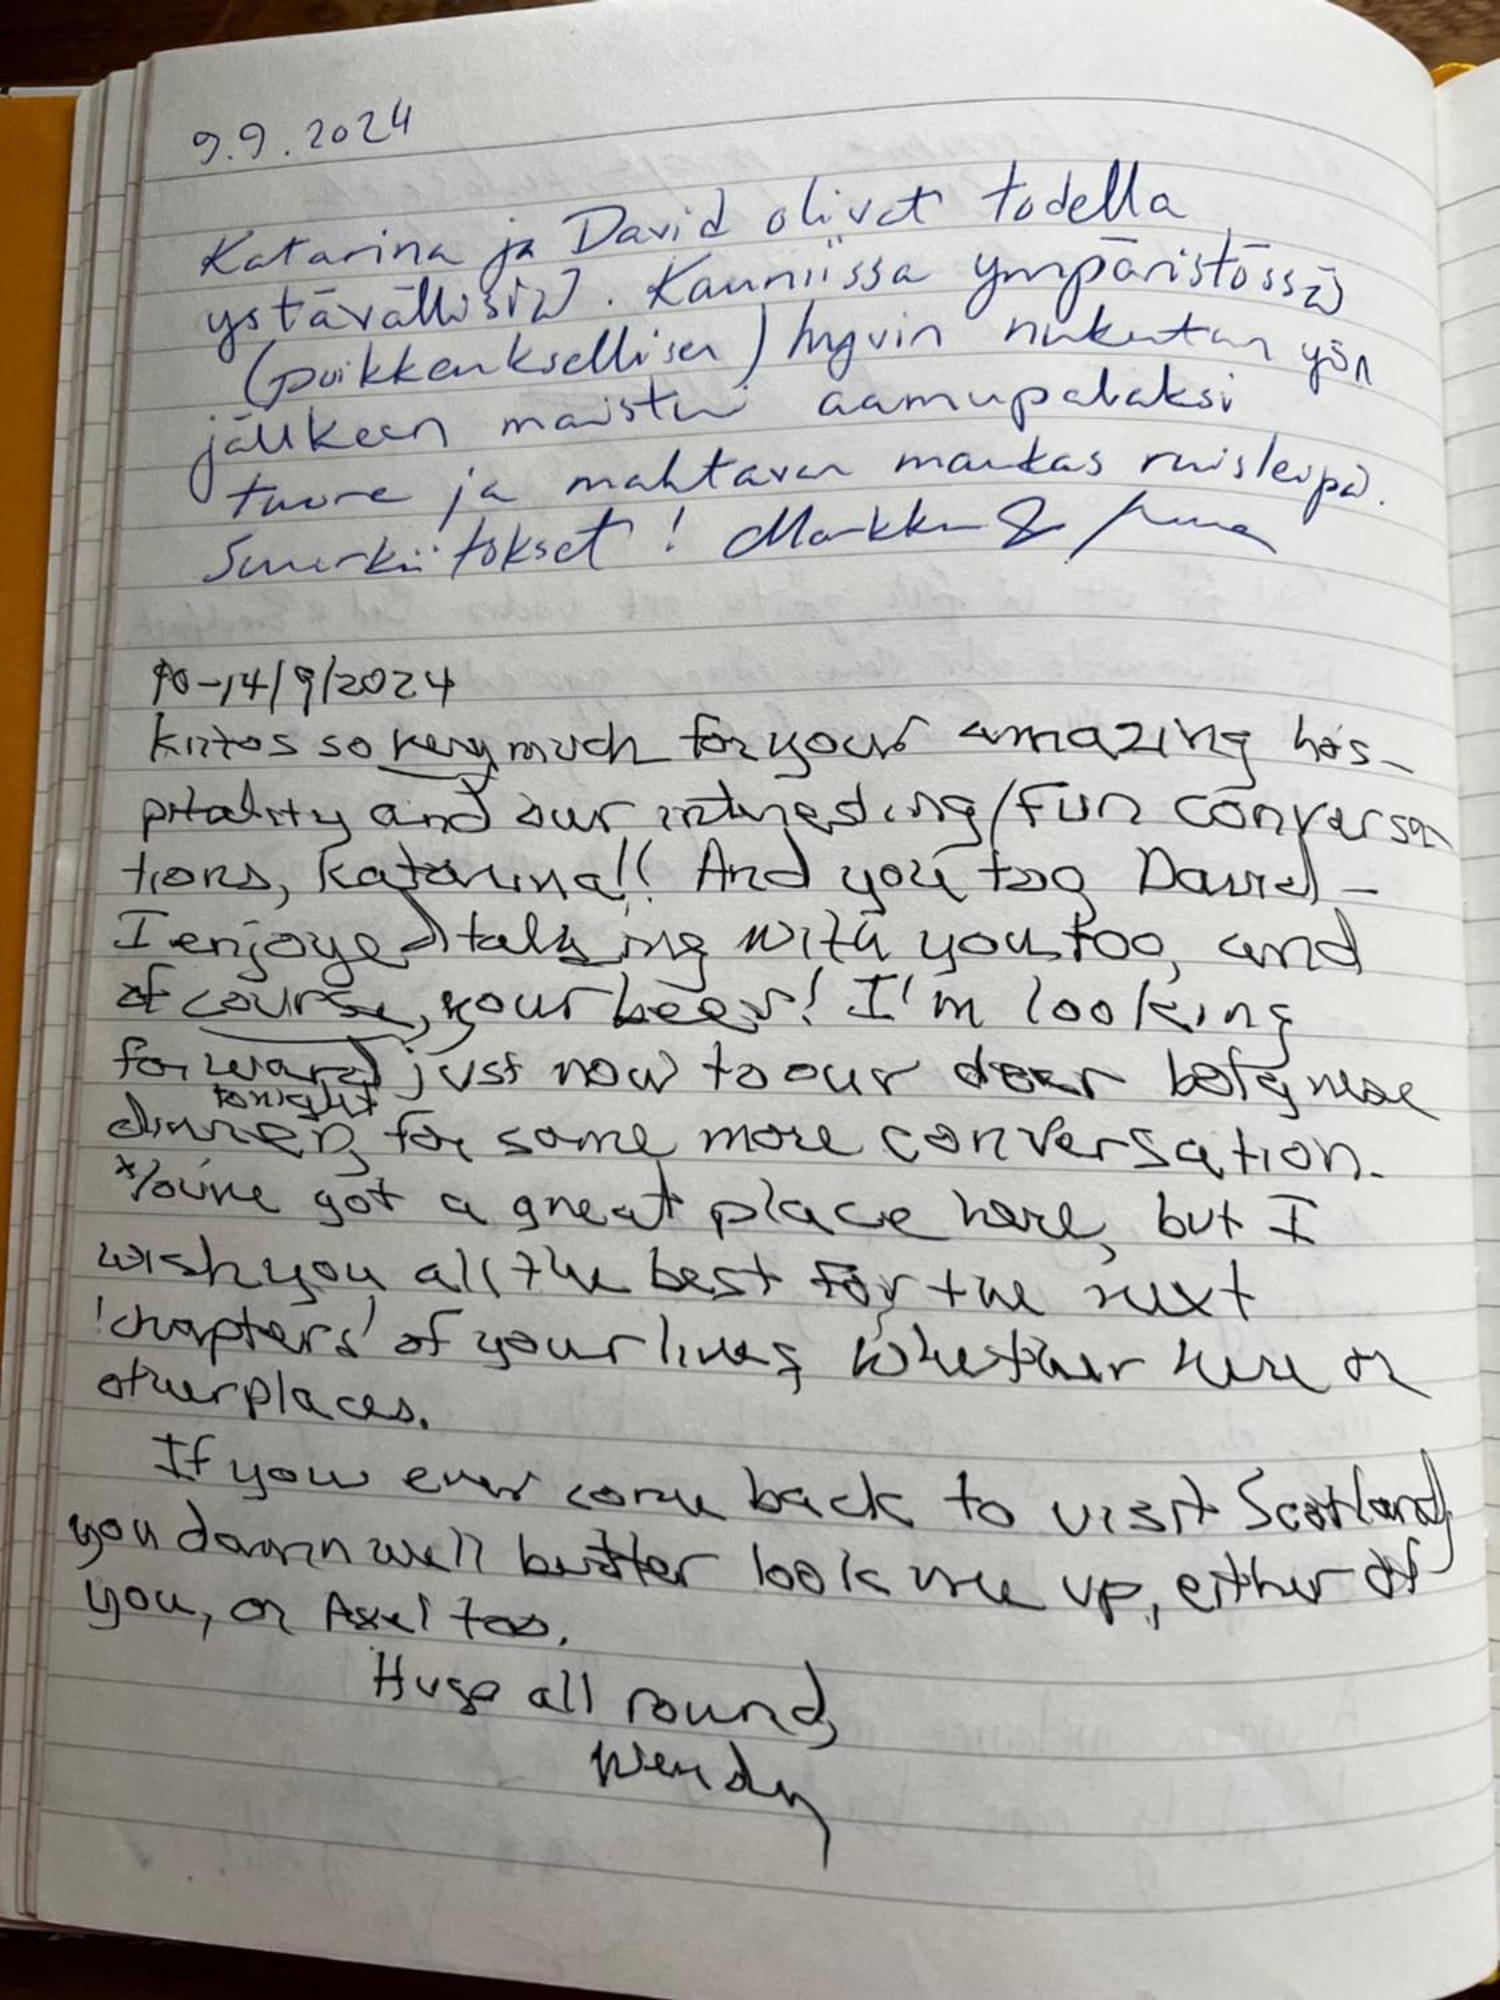 9.9.2024
Katarina ja David olivat todella
ystävällisiä. Kauniissa ympäristössä
(poikkeuksellisen) hyvin nukutun yön
jälkeen maistui aamupalaksi
tuore ja mahtavan maukas ruisleipä.
Suurkiitokset! Markku &
10-14/9/2024
kiitos so very much for your amazing hos-
pitality and our interesting/fun conversa
tions, Katarina!! And you too, David -
I enjoyed talking with you too, and
of course, your beer! I'm looking
forward just now to our
tonight
dinner, for some more conversation.
You've got a great place here, but I
wish you all the best for the next
'chapters' of your lives, whether here or
other places.
If you ever come back to visit Scotland,
you damn well better look me up, either of
you, or Axel too.
Hugs all round,
Wendy